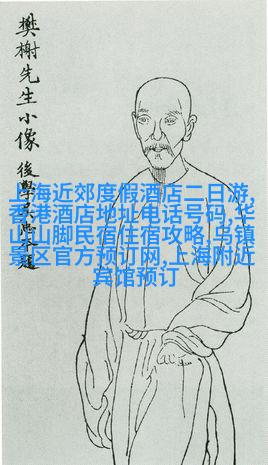 樊榭先生小像
後學吴
題
上海近郊度假酒店二日游,
香港酒店地址电话号码,华
山山脚民宿住宿攻略,乌镇
景区官方预订网,上海附近
宾馆预订